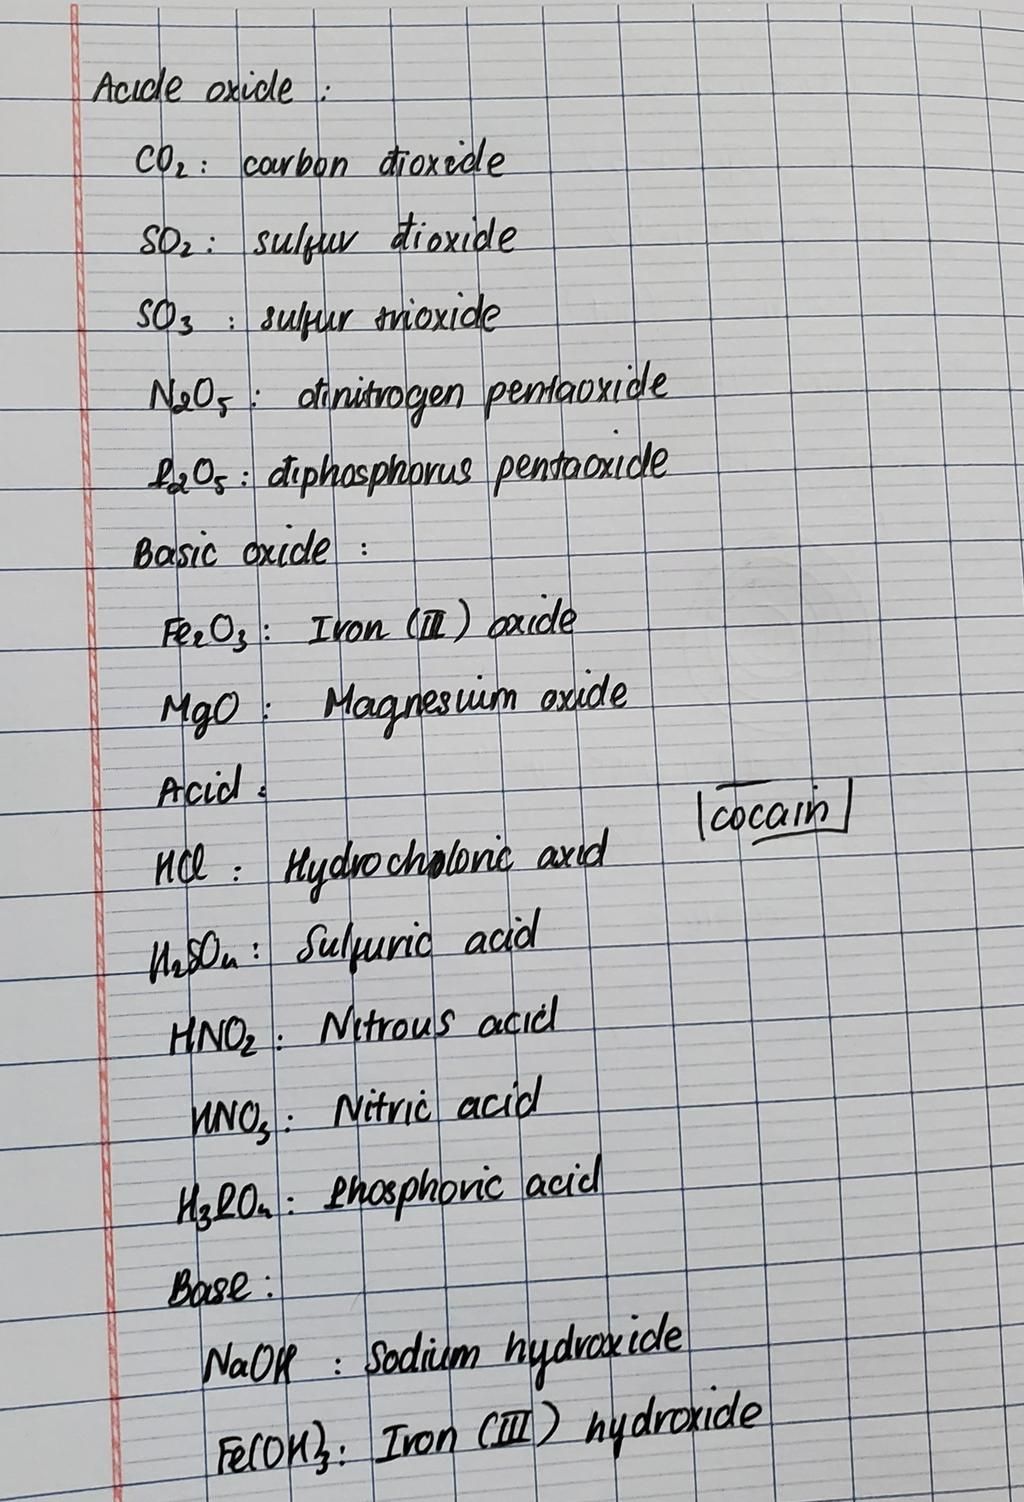 Acide oxide :
CO₂ : carbon dioxide
SO₂ : sulfur dioxide
SO₃ : sulfur trioxide
N₂O₅ : dinitrogen pentaoxide
P₂O₅ : diphosphorus pentaoxide
Basic oxide :
Fe₂O₃ : Iron (III) oxide
MgO : Magnesium oxide
Acid :
|cocain|
HCl : Hydrochloric axid
H₂SO₄ : Sulfuric acid
HNO₂ : Nitrous acid
HNO₃ : Nitric acid
H₃PO₄ : Phosphoric acid
Base :
NaOH : Sodium hydroxide
Fe(OH)₃ : Iron (III) hydroxide